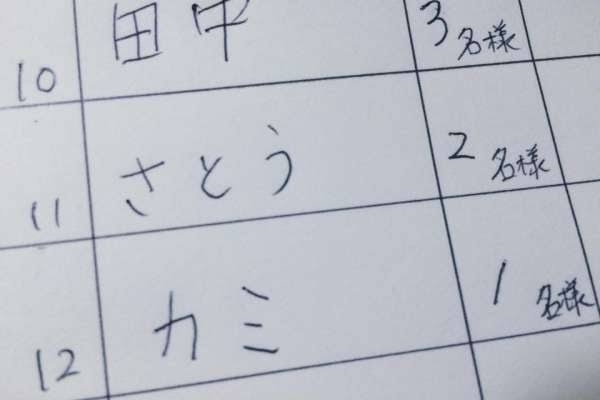 10 田中 3名様
11 さとう 2名様
12 カミ 1名様